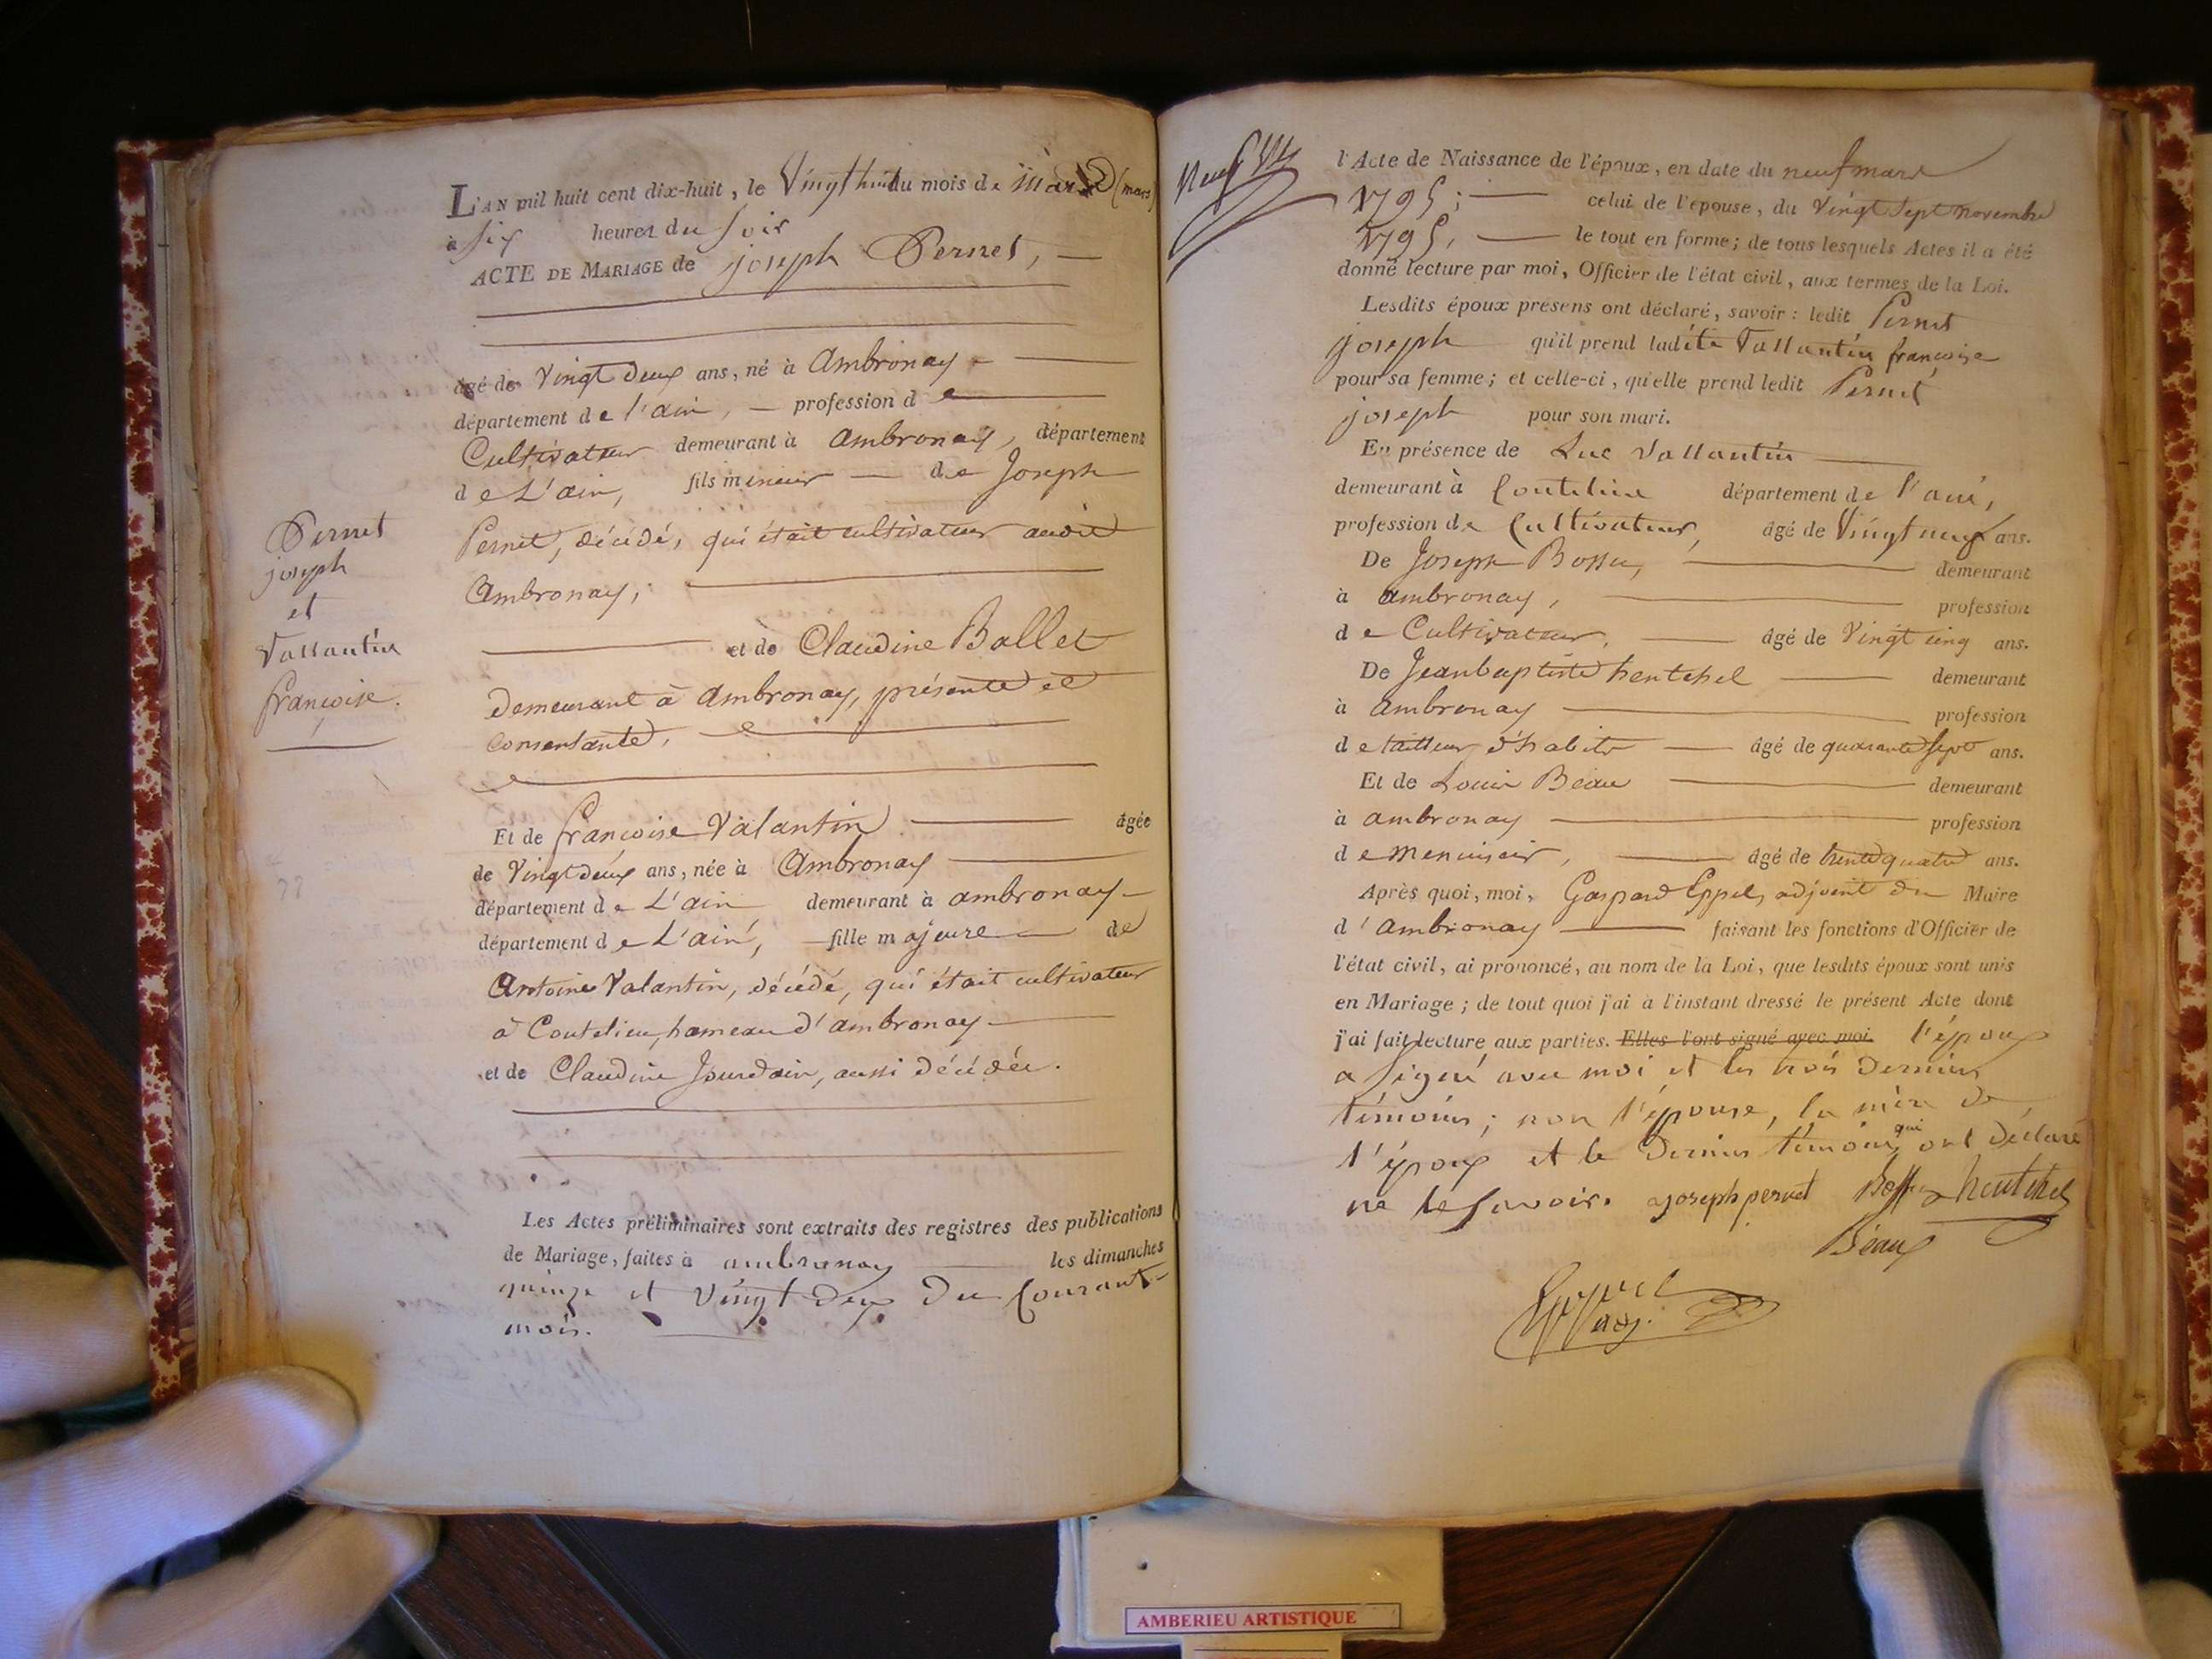 L'AN mil huit cent dix-huit, le Vingt huit du mois de mars (mars)
à six heures du soir
ACTE DE MARIAGE de joseph Pernet,
âgé de Vingt deux ans, né à Ambronay
département de l'ain, profession d
Cultivateur demeurant à Ambronay, département
de L'ain, fils mineur de Joseph
Pernet, décédé, qui était cultivateur audit
Ambronay,
et de Claudine Ballet
demeurant à Ambronay, présente et
consentante,
Et de françoise Valantin âgée
de Vingt deux ans, née à Ambronay
département de L'ain demeurant à ambronay
département de L'ain, fille majeure de
Antoine Valantin, décédé, qui était cultivateur
à Coutelieu, hameau d'ambronay
et de Claudine Jourdain, aussi décédée.
Les Actes préliminaires sont extraits des registres des publications
de Mariage, faites à ambronay les dimanches
quinze et vingt deux du Courant
mois.
Pernet
joseph
et
Vallantin
françoise.
l'Acte de Naissance de l'époux, en date du neuf mars
1795; celui de l'épouse, du Vingt Sept novembre
1795, le tout en forme; de tous lesquels Actes il a été
donné lecture par moi, Officier de l'état civil, aux termes de la Loi.
Lesdits époux présens ont déclaré, savoir: ledit Pernet
joseph qu'il prend ladite Vallantin françoise
pour sa femme; et celle-ci, qu'elle prend ledit Pernet
joseph pour son mari.
En présence de Luc Vallantin
demeurant à Coutelieu département de l'ain,
profession de Cultivateur, âgé de Vingt neuf ans.
De Joseph Bossu, demeurant
à ambronay, profession
de Cultivateur, âgé de Vingt cinq ans.
De Jean baptiste hentchel demeurant
à ambronay profession
de tailleur d'habits âgé de quarante sept ans.
Et de Louis Beau demeurant
à ambronay profession
de menuisier, âgé de trente quatre ans.
Après quoi, moi, Gaspard Eppel, adjoint du Maire
d'ambronay faisant les fonctions d'Officier de
l'état civil, ai prononcé, au nom de la Loi, que lesdits époux sont unis
en Mariage; de tout quoi j'ai à l'instant dressé le présent Acte dont
j'ai fait lecture aux parties. Elles l'ont signé avec moi. l'époux
a signé avec moi et les trois derniers
témoins; non l'épouse, la mère de
l'époux et le dernier témoin, qui ont déclaré
ne le savoir. joseph pernet Bossu hentchel
Beau
Eppel
adj.
AMBERIEU ARTISTIQUE